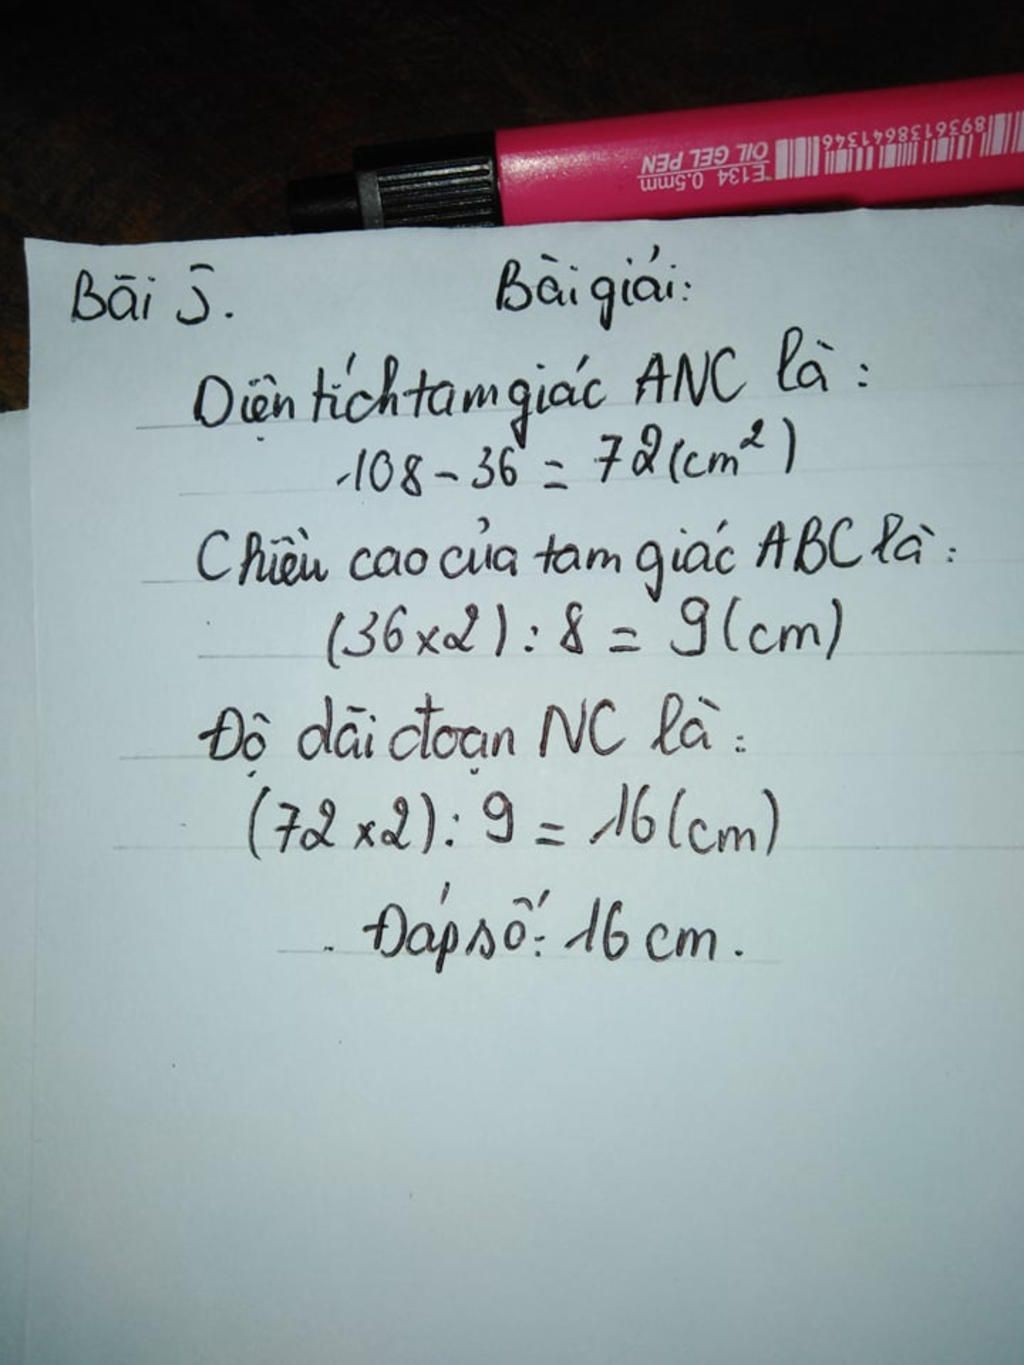 8936138641346
OIL GEL PEN
E134 0.5mm
Bài 5.
Bài giải:
Diện tích tam giác ANC là:
108 - 36 = 72 (cm²)
Chiều cao của tam giác ABC là:
(36 x 2) : 8 = 9 (cm)
Độ dài đoạn NC là:
(72 x 2) : 9 = 16 (cm)
Đáp số: 16 cm.